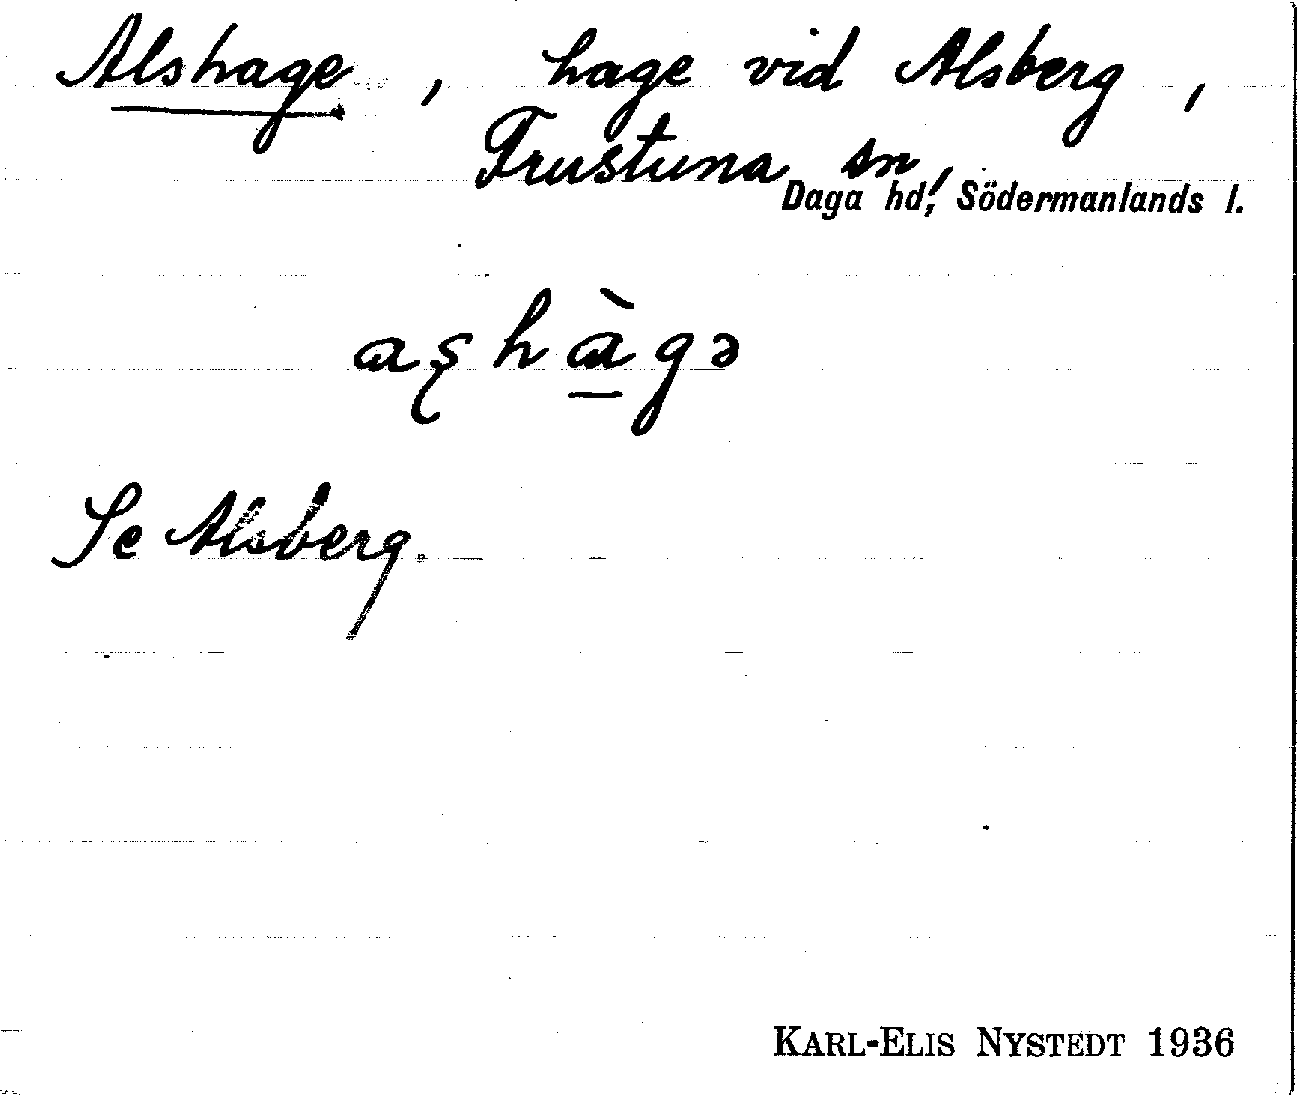 Alshage, hage vid Alsberg,
Frustuna sn,
Daga hd, Södermanlands l.
aʂhà̱gə
Se Alsberg.
KARL-ELIS NYSTEDT 1936